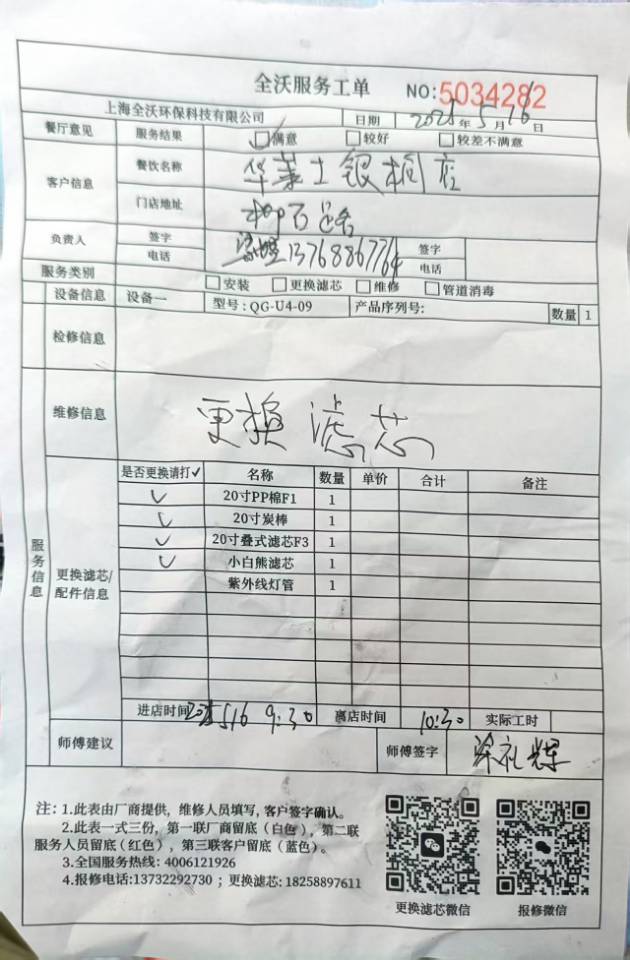 全沃服务工单 NO:5034282
上海全沃环保科技有限公司 日期 年5月16日
餐厅意见 服务结果 满意 较好 较差不满意
客户信息 餐饮名称 华莱士银桐店
门店地址
负责人 签字 签字
电话 13768867764 电话
服务类别 安装 更换滤芯 维修 管道消毒
设备信息 设备一 型号:QG-U4-09 产品序列号: 数量 1
检修信息
维修信息 更换滤芯
服务信息
更换滤芯/配件信息
是否更换请打✓ 名称 数量 单价 合计 备注
✓ 20寸PP棉F1 1
✓ 20寸炭棒 1
✓ 20寸叠式滤芯F3 1
✓ 小白熊滤芯 1
紫外线灯管 1
进店时间 9:30 离店时间 10:30 实际工时
师傅建议 师傅签字 涂礼辉
注:1.此表由厂商提供，维修人员填写，客户签字确认。
2.此表一式三份，第一联厂商留底(白色)，第二联
服务人员留底(红色)，第三联客户留底(蓝色)。
3.全国服务热线: 4006121926
4.报修电话:13732292730 ; 更换滤芯: 18258897611
更换滤芯微信 报修微信